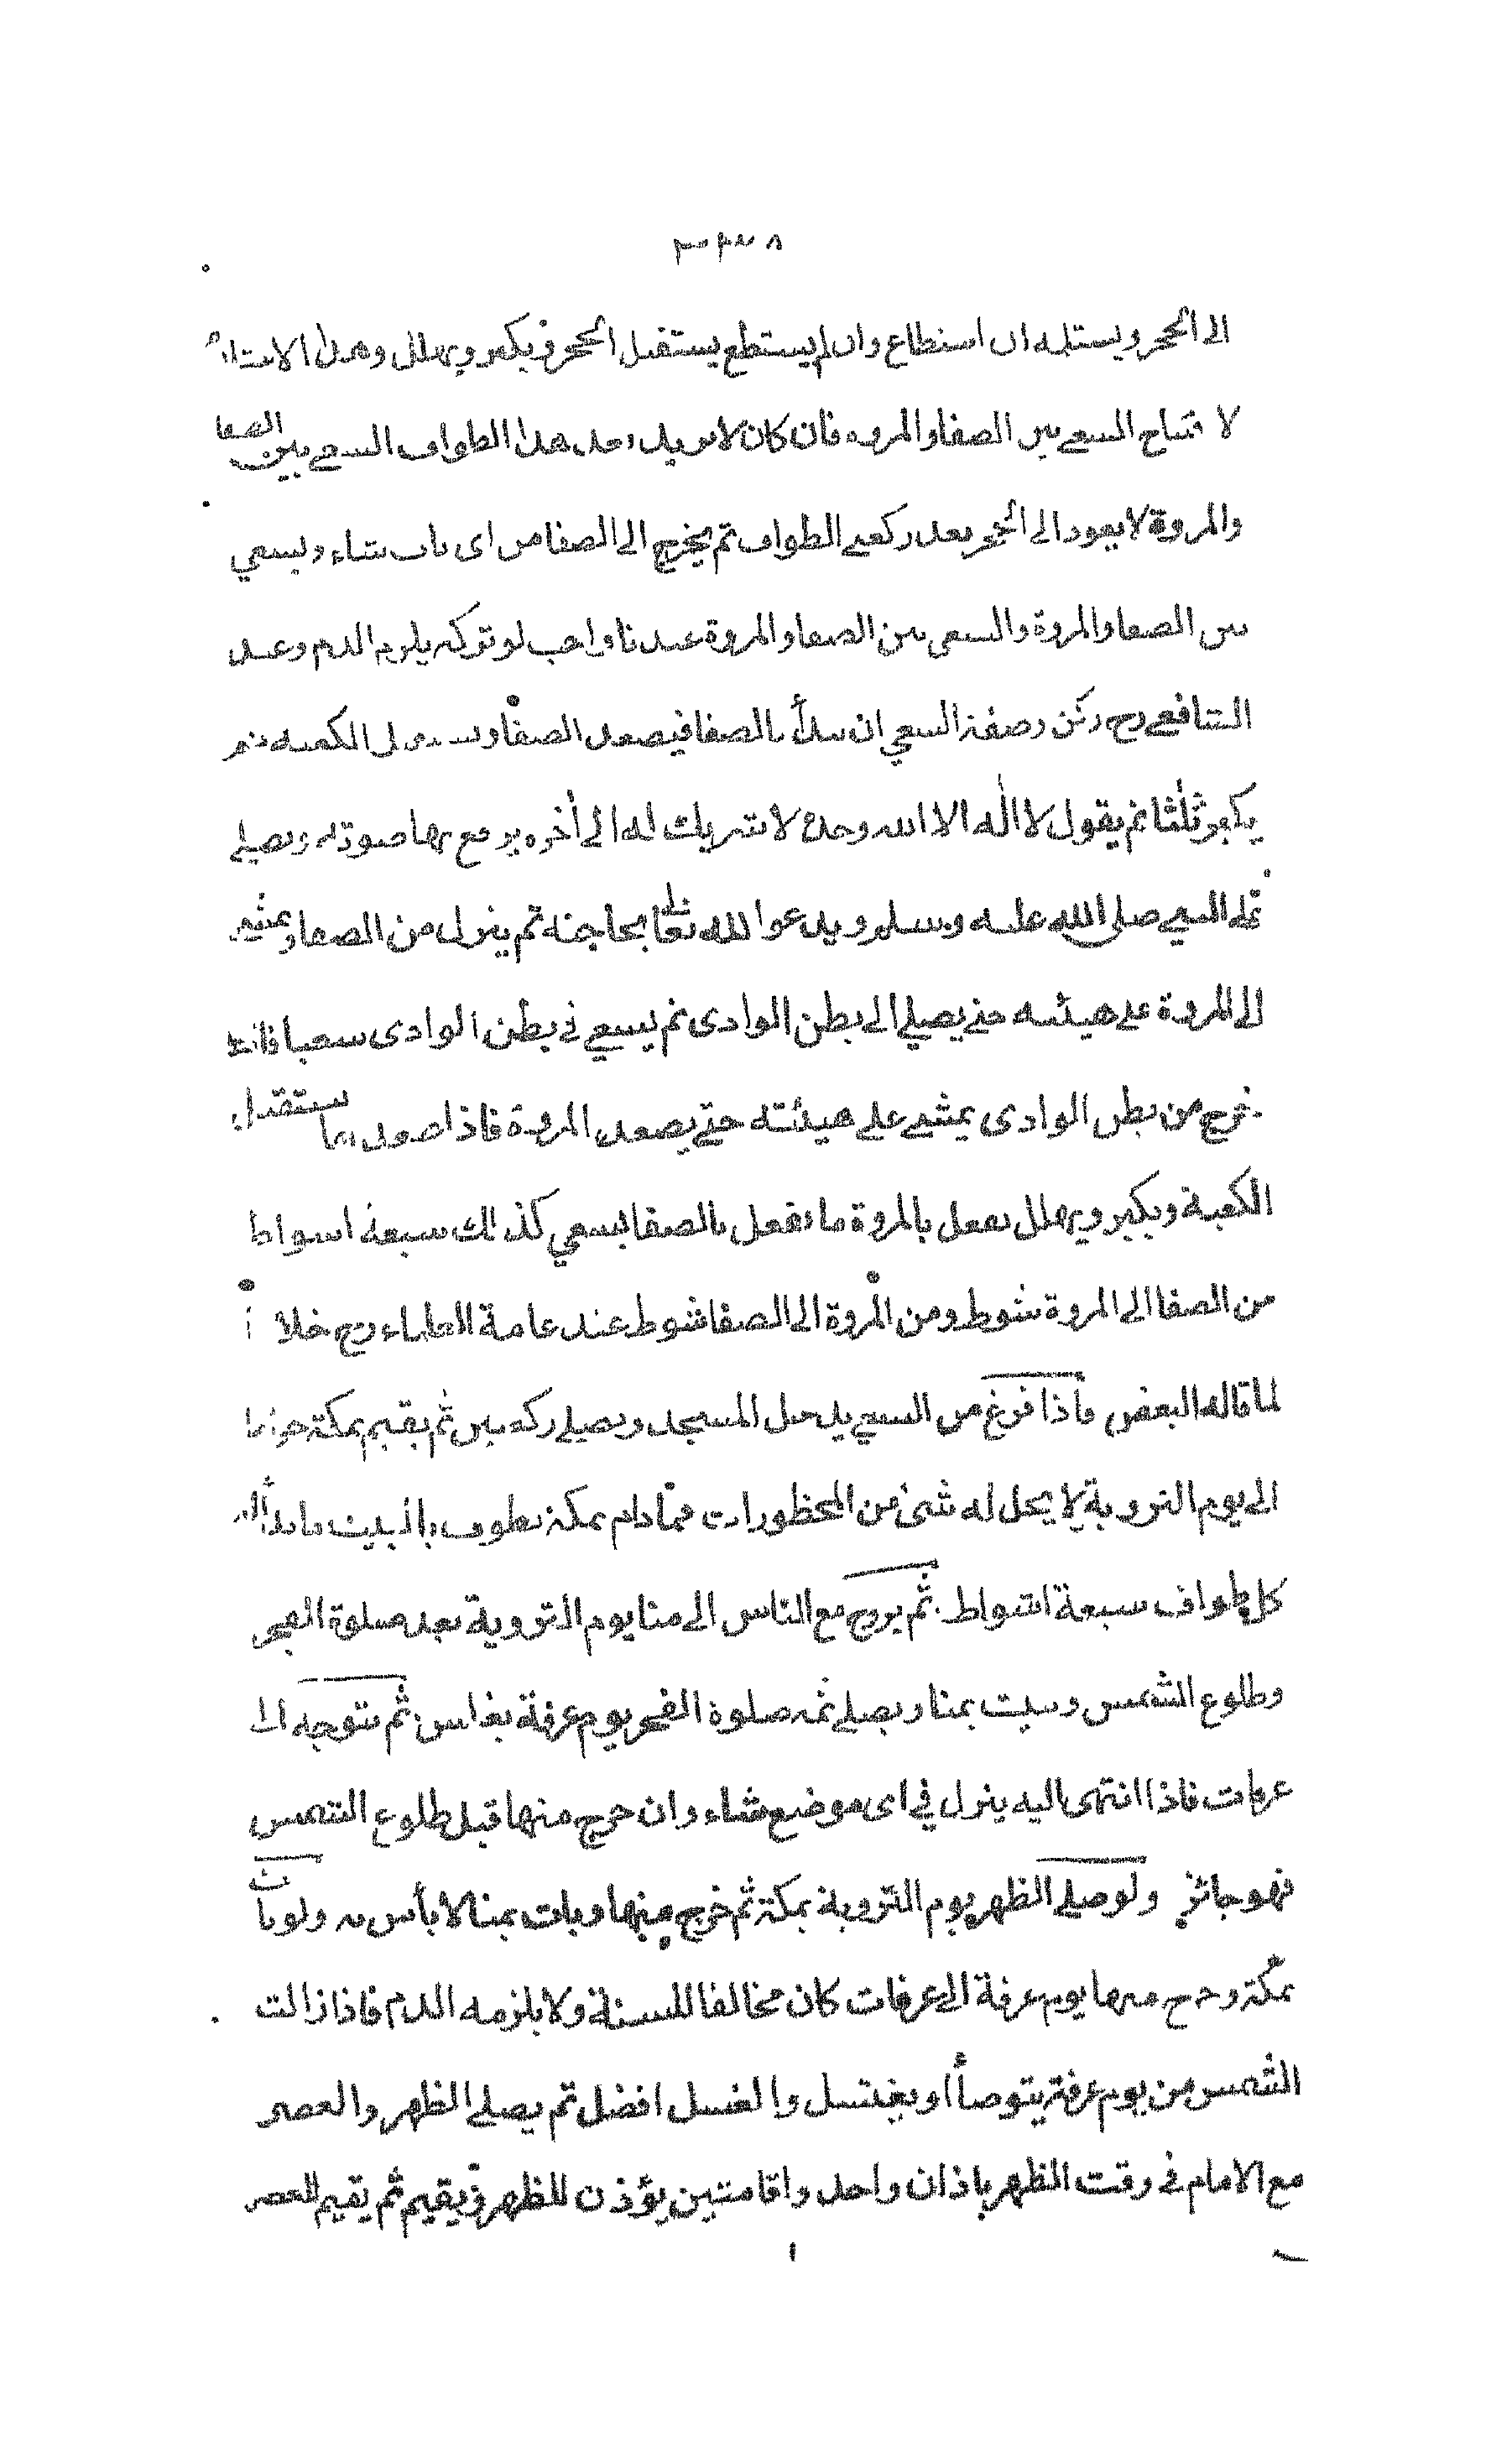 ٣٣٨
الى الحجر ويستلمه ان استطاع وان لم يستطع يستقبل الحجر ويكبر ويهلل وهذا الاستلام
لافتتاح السعي بين الصفا والمروة فان كان لا يريد بعد هذا الطواف السعي بين الصفا
والمروة لا يعود الى الحجر بعد ركعتي الطواف ثم يخرج الى الصفا من اى باب شاء ويسعي
بين الصفا والمروة والسعي بين الصفا والمروة عندنا واجب لو تركه يلزمه الدم وعند
الشافعي رح ركن وصفة السعي ان يبدأ بالصفا فيصعد الصفا ويستقبل الكعبة ثم
يكبر ثلثا ثم يقول لا اله الا الله وحده لا شريك له الى أخره يرفع بها صوته ويصلي
على النبي صلى الله عليه وسلم ويدعوا الله تعا بحاجته ثم ينزل من الصفا ويمشي
الى المروة على هيئته حتى يصلي الى بطن الوادى ثم يسعي في بطن الوادى سعيا فاذا
خرج من بطن الوادى يمشي على هيئته حتى يصعد المروة فاذا صعدها يستقبل
الكعبة ويكبر ويهلل يفعل بالمروة ما يفعل بالصفا يسعي كذلك سبعة اشواط
من الصفا الى المروة شوط ومن المروة الى الصفا شوط عند عامة العلماء رح خلافا
لما قاله البعض فاذا فرغ من السعي يدخل المسجد ويصلي ركعتين ثم يقيم بمكة حراما
الى يوم التروية لا يحل له شئ من المحظورات فما دام بمكة يطوف بالبيت ما بدأ له
كل طواف سبعة اشواط ثم يروح مع الناس الى منا يوم التروية بعد صلوة الفجر
وطلوع الشمس ويبيت بمنا ويصلي ثمه صلوة الفجر يوم عرفة بغلس ثم يتوجه الى
عرفات فاذا انتهى اليه ينزل في اى موضع شاء وان خرج منها قبل طلوع الشمس
فهو جائز ولو صلى الظهر يوم التروية بمكة ثم خرج منها وبات بمنا لا بأس به ولو بات
بمكة وخرج منها يوم عرفة الى عرفات كان مخالفا للسنة ولا يلزمه الدم فاذا زالت
الشمس من يوم عرفة يتوضأ او يغتسل والغسل افضل ثم يصلي الظهر والعصر
مع الامام في وقت الظهر باذان واحد واقامتين يؤذن للظهر ويقيم ثم يقيم للعصر